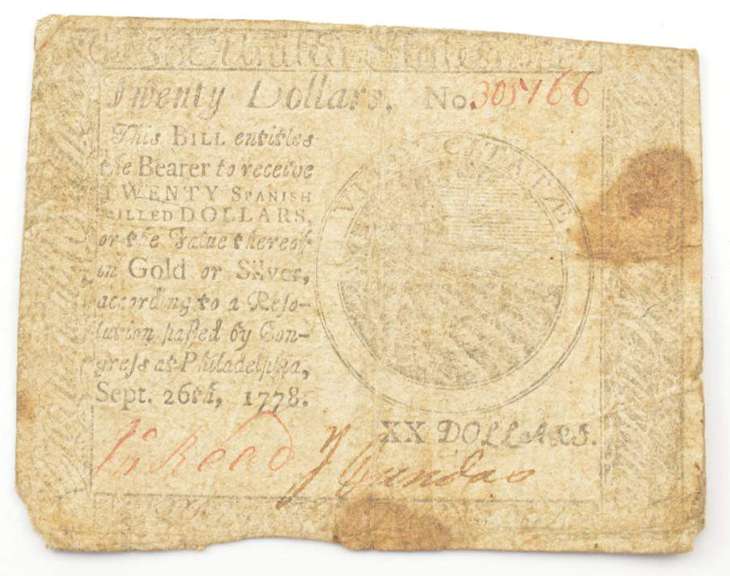 United States
Twenty Dollars. No. 305166
This BILL entitles
the Bearer to receive
TWENTY SPANISH
MILLED DOLLARS,
or the Value thereof
in Gold or Silver,
according to a Reso-
lution passed by Con-
gress at Philadelphia,
Sept. 26th, 1778.
VI CONCITATÆ
XX DOLLARS.
Js Read J Dundas